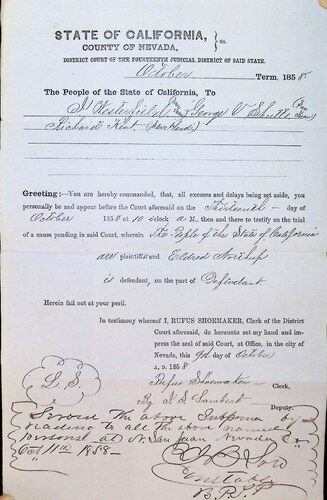 STATE OF CALIFORNIA,
COUNTY OF NEVADA, } ss.
DISTRICT COURT OF THE FOURTEENTH JUDICIAL DISTRICT OF SAID STATE.
October Term, 1858
The People of the State of California, To
Westerfield George V Shuttz
Richard Kent
Greeting:—You are hereby commanded, that, all excuses and delays being set aside, you
personally be and appear before the Court aforesaid on the Thirteenth day of
October 1858 at 10 o'clock a M., then and there to testify on the trial
of a cause pending in said Court, wherein The People of the State of California
are plaintiffs and Eldred Northup
is defendant, on the part of Defendant
Herein fail not at your peril.
In testimony whereof I, RUFUS SHOEMAKER, Clerk of the District
Court aforesaid, do hereunto set my hand and im-
press the seal of said Court, at Office, in the city of
Nevada, this 9th day of October
A. D. 1858
Rufus Shoemaker Clerk,
L.S.
By J. S. Lambert Deputy.
Served the above Subpoena by
reading to all the above named
persons at N. San Juan Nevada Co
Oct 11th 1858—
Lord
Constable